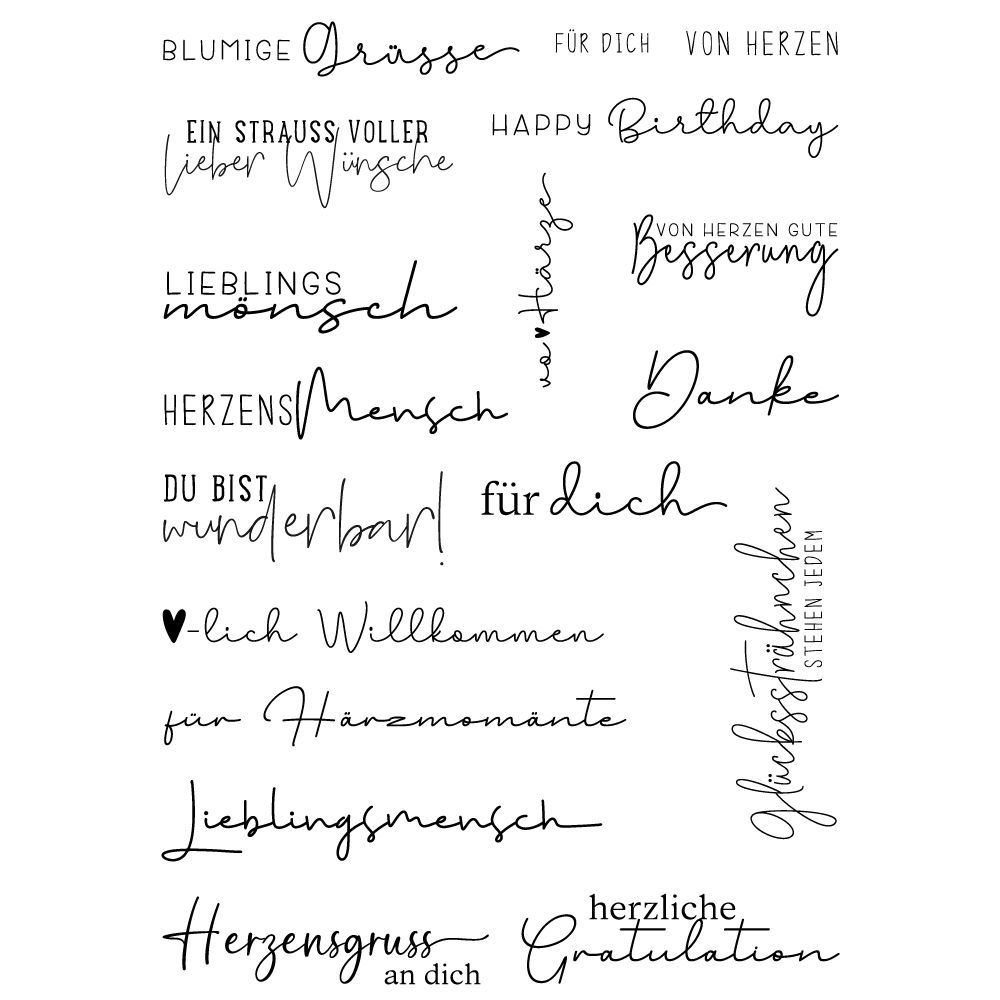 BLUMIGE Grüsse
FÜR DICH
VON HERZEN
EIN STRAUSS VOLLER
lieber Wünsche
HAPPY Birthday
vo ♥ Härze
VON HERZEN GUTE
Besserung
LIEBLINGS
mönsch
HERZENSMensch
Danke
DU BIST
wunderbar!
für dich
Glückssträhnchen
STEHEN JEDEM
♥-lich Willkommen
für Härzmomänte
Lieblingsmensch
Herzensgruss
an dich
herzliche
Gratulation